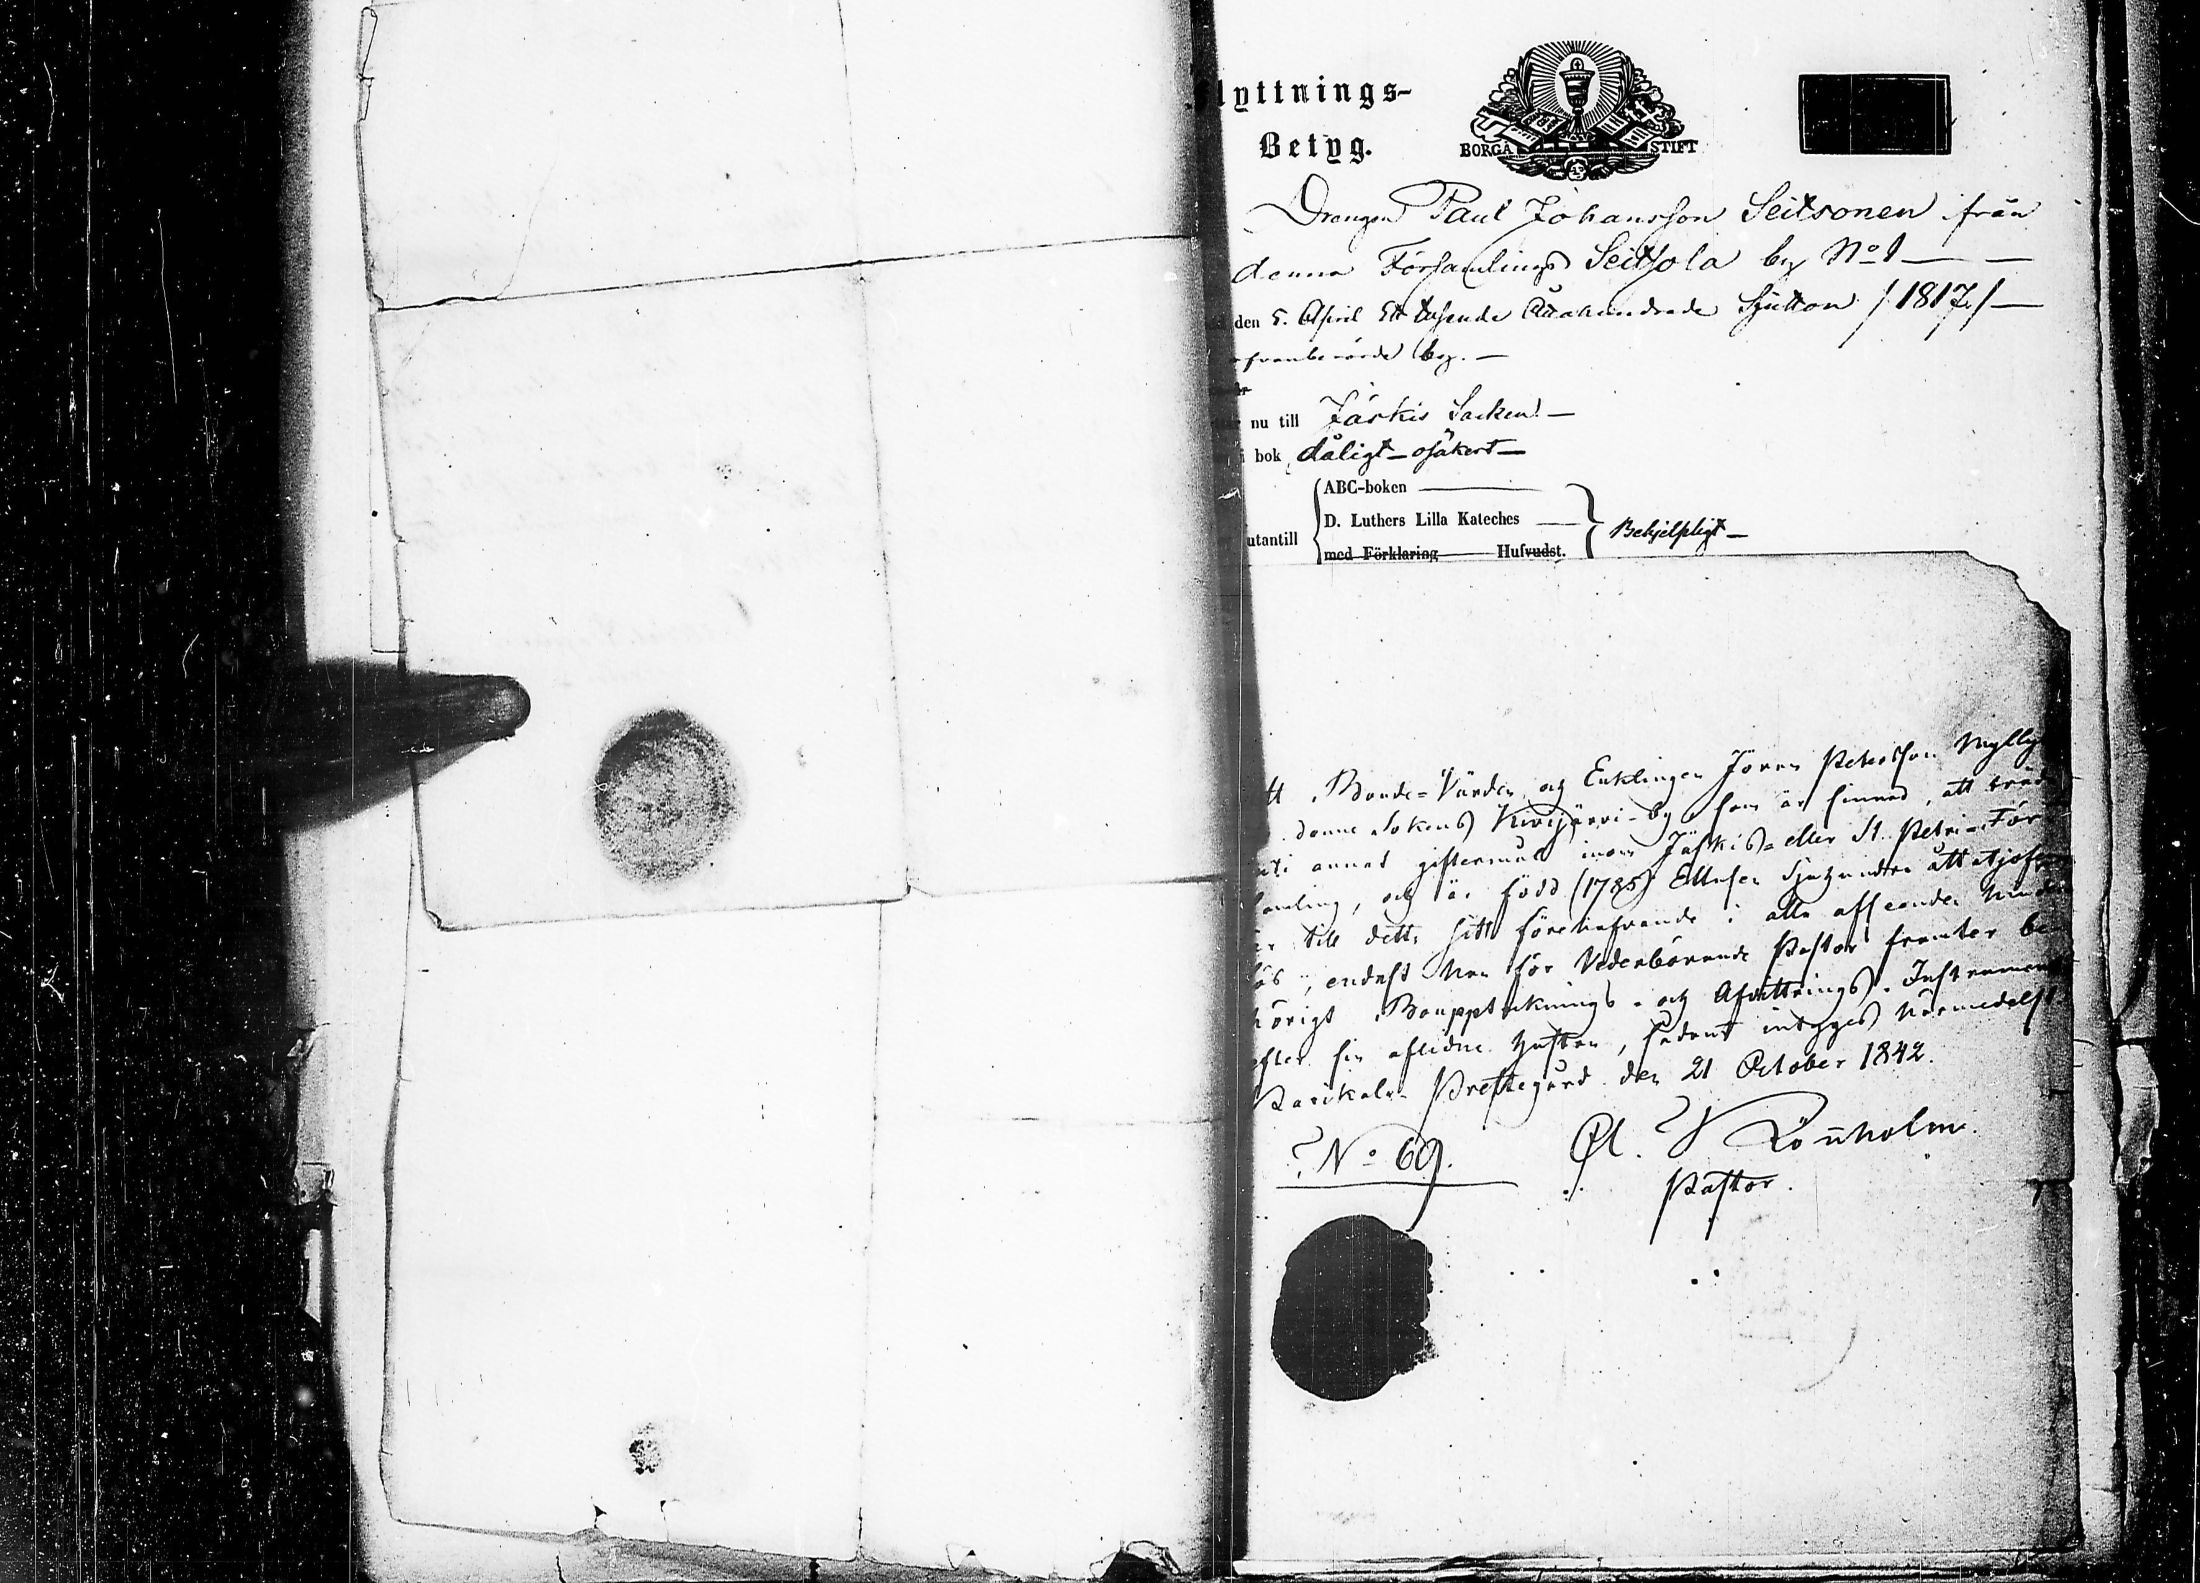 lyttnings-
Betyg.
BORGÅ STIFT
Drengen Paul Johansson Seitsonen från
denna Församlings Seitsola by No 1
den 5. April Ett tusende Åttahundrade Sjutton /1817./
by.
nu till Jäskis Socken
bok dåligt osäkert
ABC-boken
D. Luthers Lilla Kateches
utantill
med Förklaring Hufvudst.
Behjelpligt
tt Bonde-Värden och Enklingen Jöran Petersson Mylly
denne Sokens Kivijärvi-by som är sinnad, att träd
uti annat giftermål inom Jäskis- eller St. Petri-För
samling, och är född (1785) Ettusen Sjuhundra åttatjofem
är till detta sitt förehafvande i alla afseenden hinder
lös, endast han för Vederbörande Pastor framter be
hörigt Bouppteknings- och Afvittrings-Instrument
efter sin aflidne hustru, sådant intyges härmedelst.
Parikala Prestegård den 21 October 1842.
No 69.
Lönnholm.
Pastor.